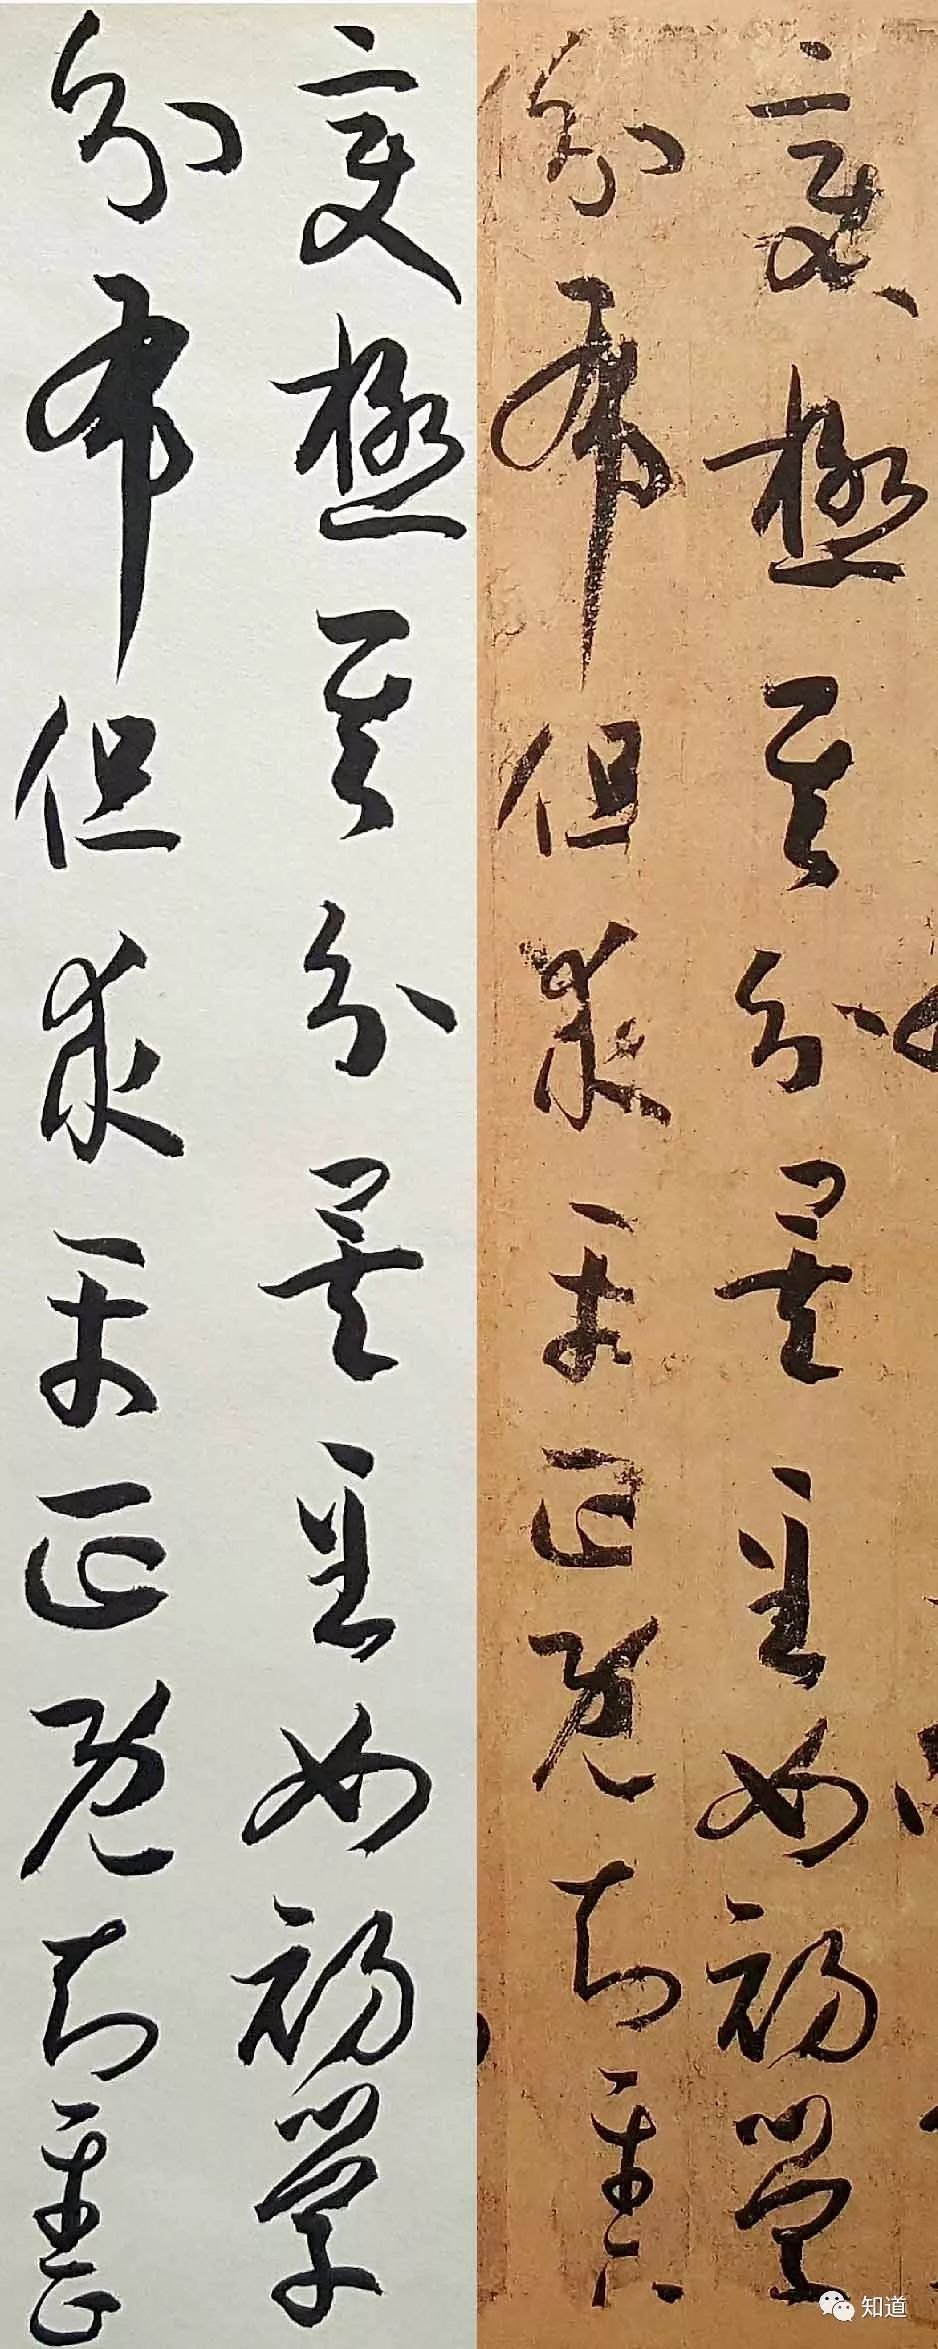 變極其分矣至如初學
分布但求平正既知平正
變極其分矣至如初學
分布但求平正既知平正
知道